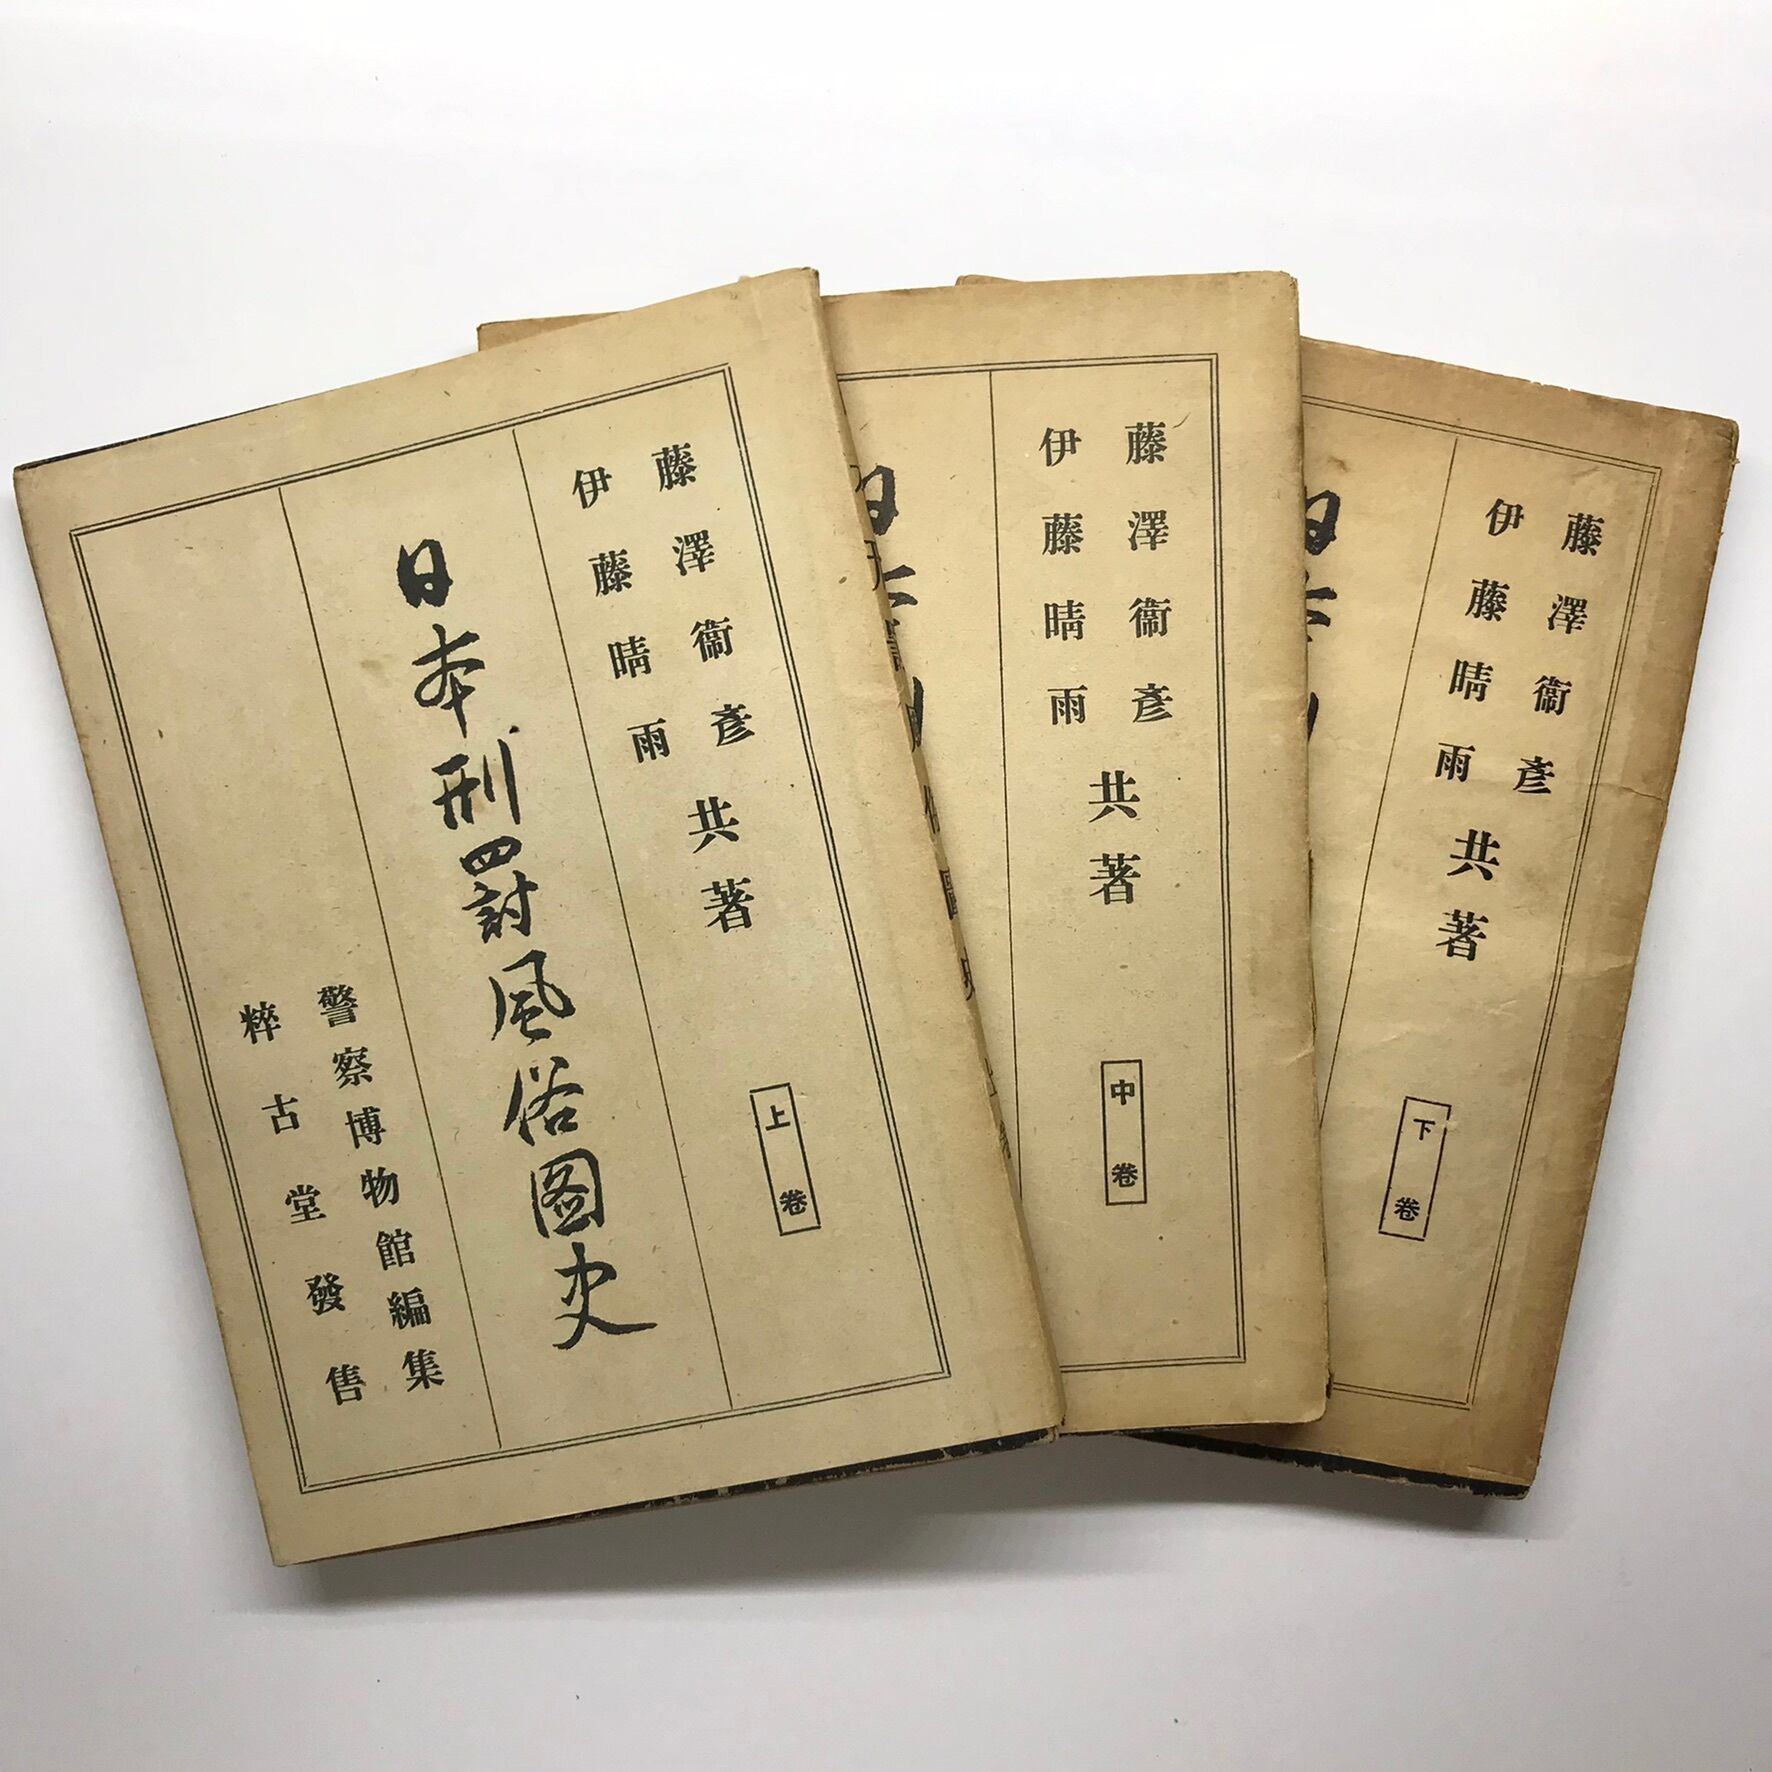 藤澤衞彥
伊藤晴雨
共著
上卷
日本刑罰風俗圖史
警察博物館編集
粹古堂發售
藤澤衞彥
伊藤晴雨
共著
中卷
日本
藤澤衞彥
伊藤晴雨
共著
下卷
日本